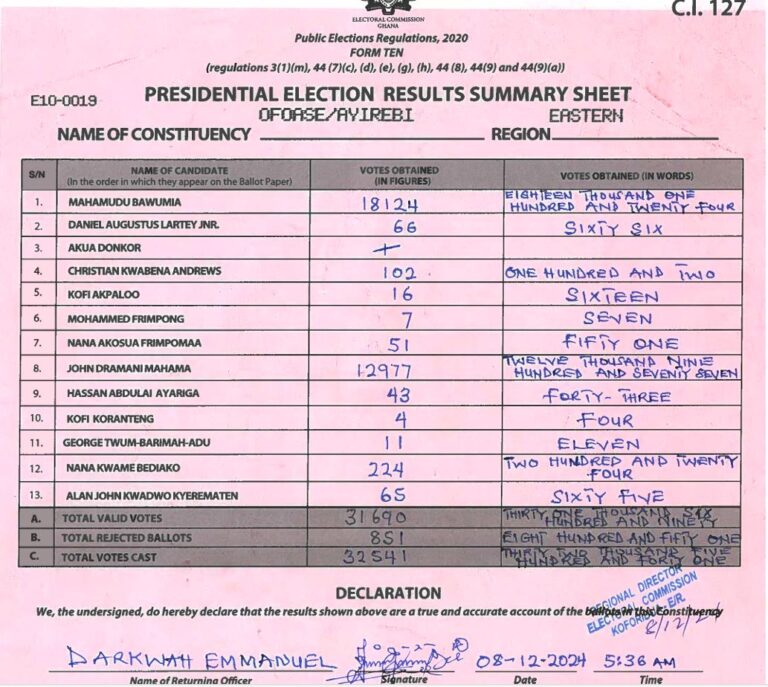 C.I. 127
ELECTORAL COMMISSION
GHANA
Public Elections Regulations, 2020
FORM TEN
(regulations 3(1)(m), 44 (7)(c), (d), (e), (g), (h), 44 (8), 44(9) and 44(9)(a))
E10-0019 PRESIDENTIAL ELECTION RESULTS SUMMARY SHEET
OFOASE/AYIREBI EASTERN
NAME OF CONSTITUENCY REGION
S/N NAME OF CANDIDATE (In the order in which they appear on the Ballot Paper) VOTES OBTAINED (IN FIGURES) VOTES OBTAINED (IN WORDS)
1. MAHAMUDU BAWUMIA 18124 EIGHTEEN THOUSAND ONE HUNDRED AND TWENTY FOUR
2. DANIEL AUGUSTUS LARTEY JNR. 66 SIXTY SIX
3. AKUA DONKOR
4. CHRISTIAN KWABENA ANDREWS 102 ONE HUNDRED AND TWO
5. KOFI AKPALOO 16 SIXTEEN
6. MOHAMMED FRIMPONG 7 SEVEN
7. NANA AKOSUA FRIMPOMAA 51 FIFTY ONE
8. JOHN DRAMANI MAHAMA 12977 TWELVE THOUSAND NINE HUNDRED AND SEVENTY SEVEN
9. HASSAN ABDULAI AYARIGA 43 FORTY-THREE
10. KOFI KORANTENG 4 FOUR
11. GEORGE TWUM-BARIMAH-ADU 11 ELEVEN
12. NANA KWAME BEDIAKO 224 TWO HUNDRED AND TWENTY FOUR
13. ALAN JOHN KWADWO KYEREMATEN 65 SIXTY FIVE
A. TOTAL VALID VOTES 31690 THIRTY ONE THOUSAND SIX HUNDRED AND NINETY
B. TOTAL REJECTED BALLOTS 851 EIGHT HUNDRED AND FIFTY ONE
C. TOTAL VOTES CAST 32541 THIRTY TWO THOUSAND FIVE HUNDRED AND FORTY ONE
DECLARATION
We, the undersigned, do hereby declare that the results shown above are a true and accurate account of the ballots in this Constituency
REGIONAL DIRECTOR
ELECTORAL COMMISSION
KOFORIDUA, E/R.
8/12/24
DARKWAH EMMANUEL 08-12-2024 5:36 AM
Name of Returning Officer Signature Date Time